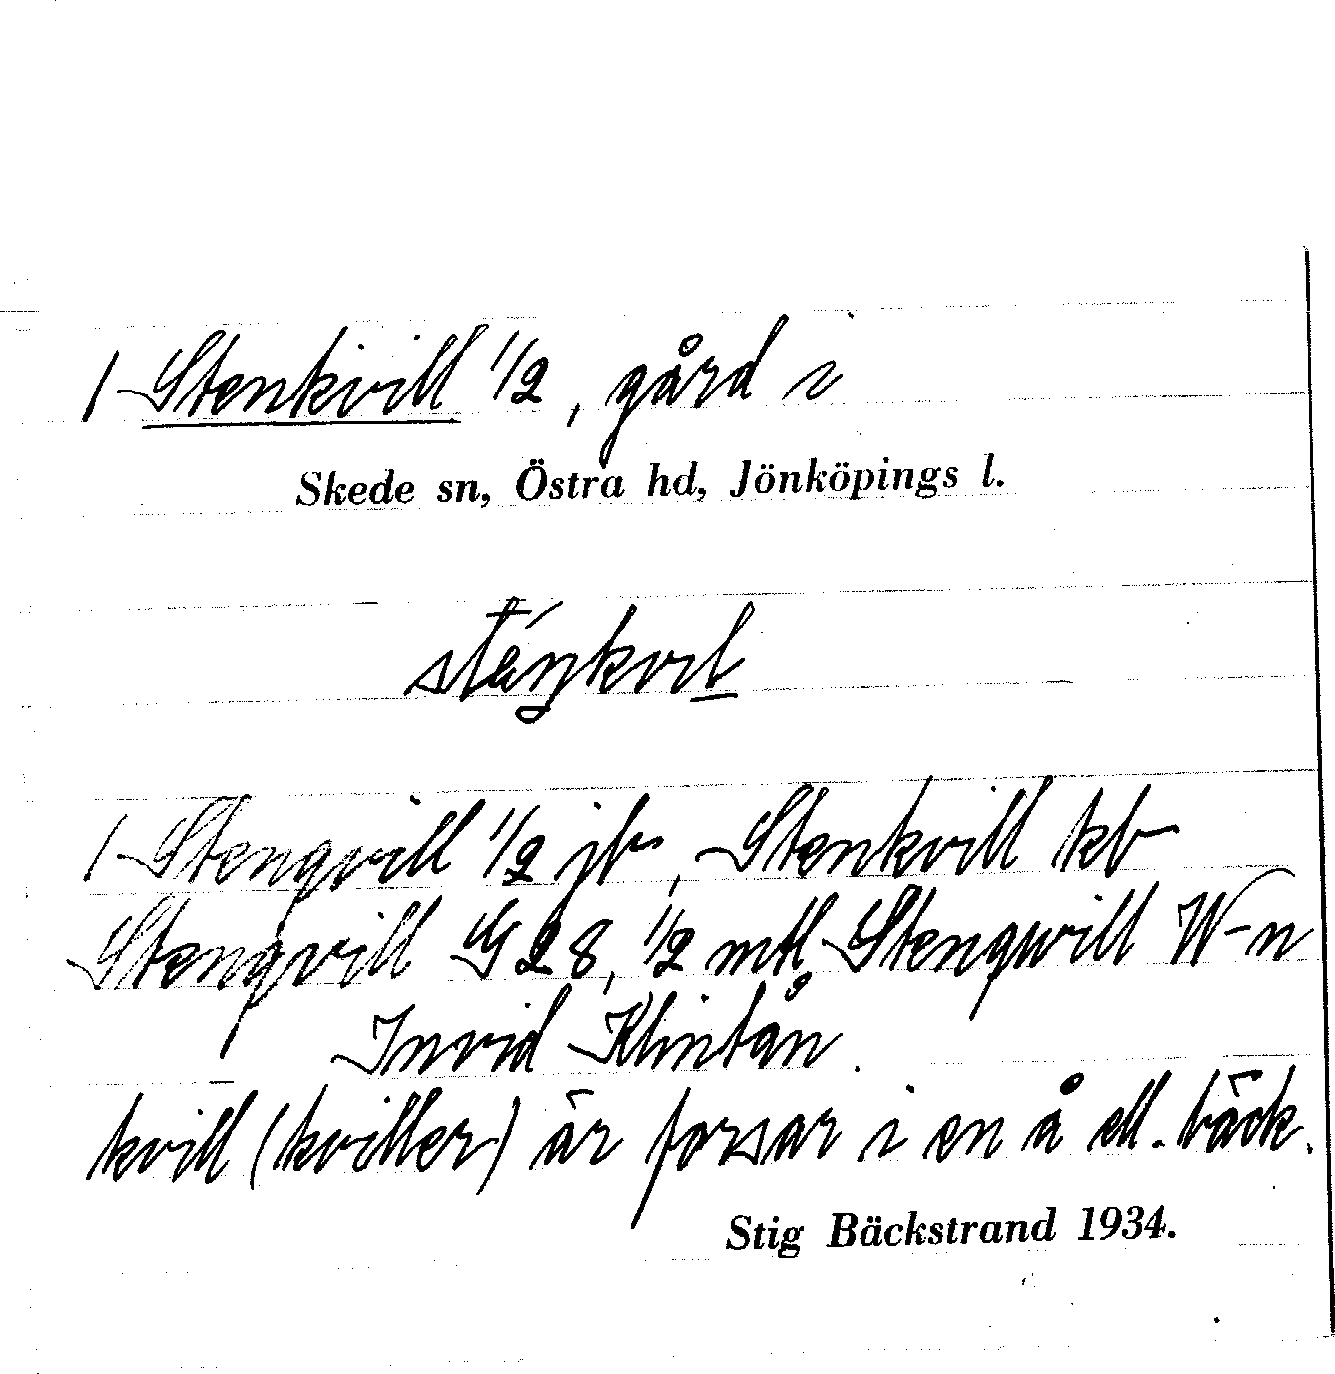 1 Stenkvill 1/2, gård i
Skede sn, Östra hd, Jönköpings l.
sténkvil
1 Stenqvill 1/2 jb, Stenkvill kb
Stenqvill G 28, 1/2 mtl, Stenqwill W-n
Invid Klintån.
kvill (kviller) är forsar i en å ell. bäck.
Stig Bäckstrand 1934.